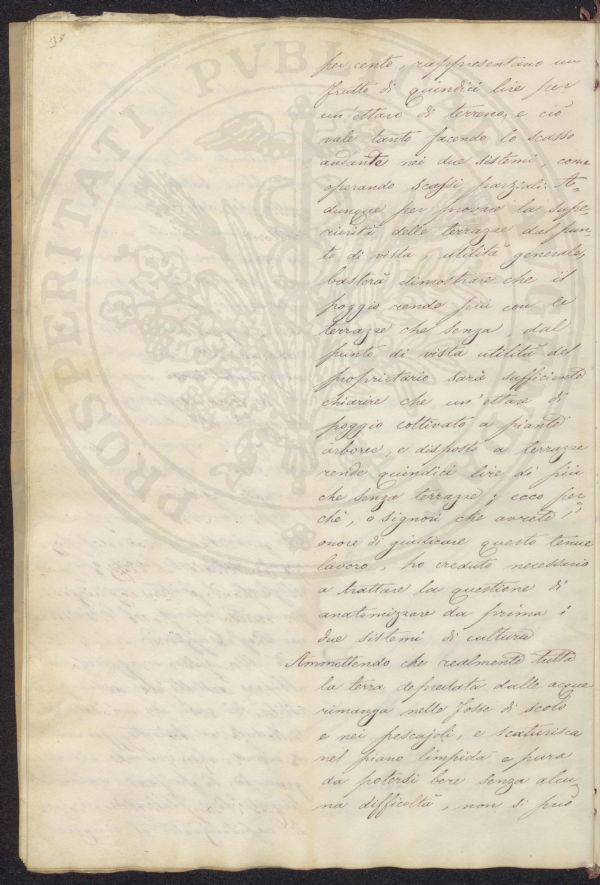 38
per cento, rappresentano un
frutto di quindici lire per
un'ettaro di terreno, e ciò
vale tanto facendo lo scasso
andante nei due sistemi, come
operando scassi parziali: A-
dunque per provare la supe-
riorità delle terrazze dal pun-
to di vista, utilità generale,
basterà dimostrare che il
poggio rende più con le
terrazze che senza, dal
punto di vista utilità del
proprietario sarà sufficiente
chiarire che un'ettare di
poggio coltivato a piante
arboree, e disposto a terrazze
rende quindici lire di più
che senza terrazze; ecco per
chè, o signori che avrete l'
onore di giudicare questo tenue
lavoro, ho creduto necessario
a trattare la questione di
anatomizzare da prima i
due sistemi di cultura
Ammettendo che realmente tutta
la terra depredata dalle acque
rimanga nelle fosse di scolo
e nei pescajoli, e scaturisca
nel piano limpida e pura
da potersi bere senza alcu-
na difficoltà, non si può
PROSPERITATI PUBLICAE